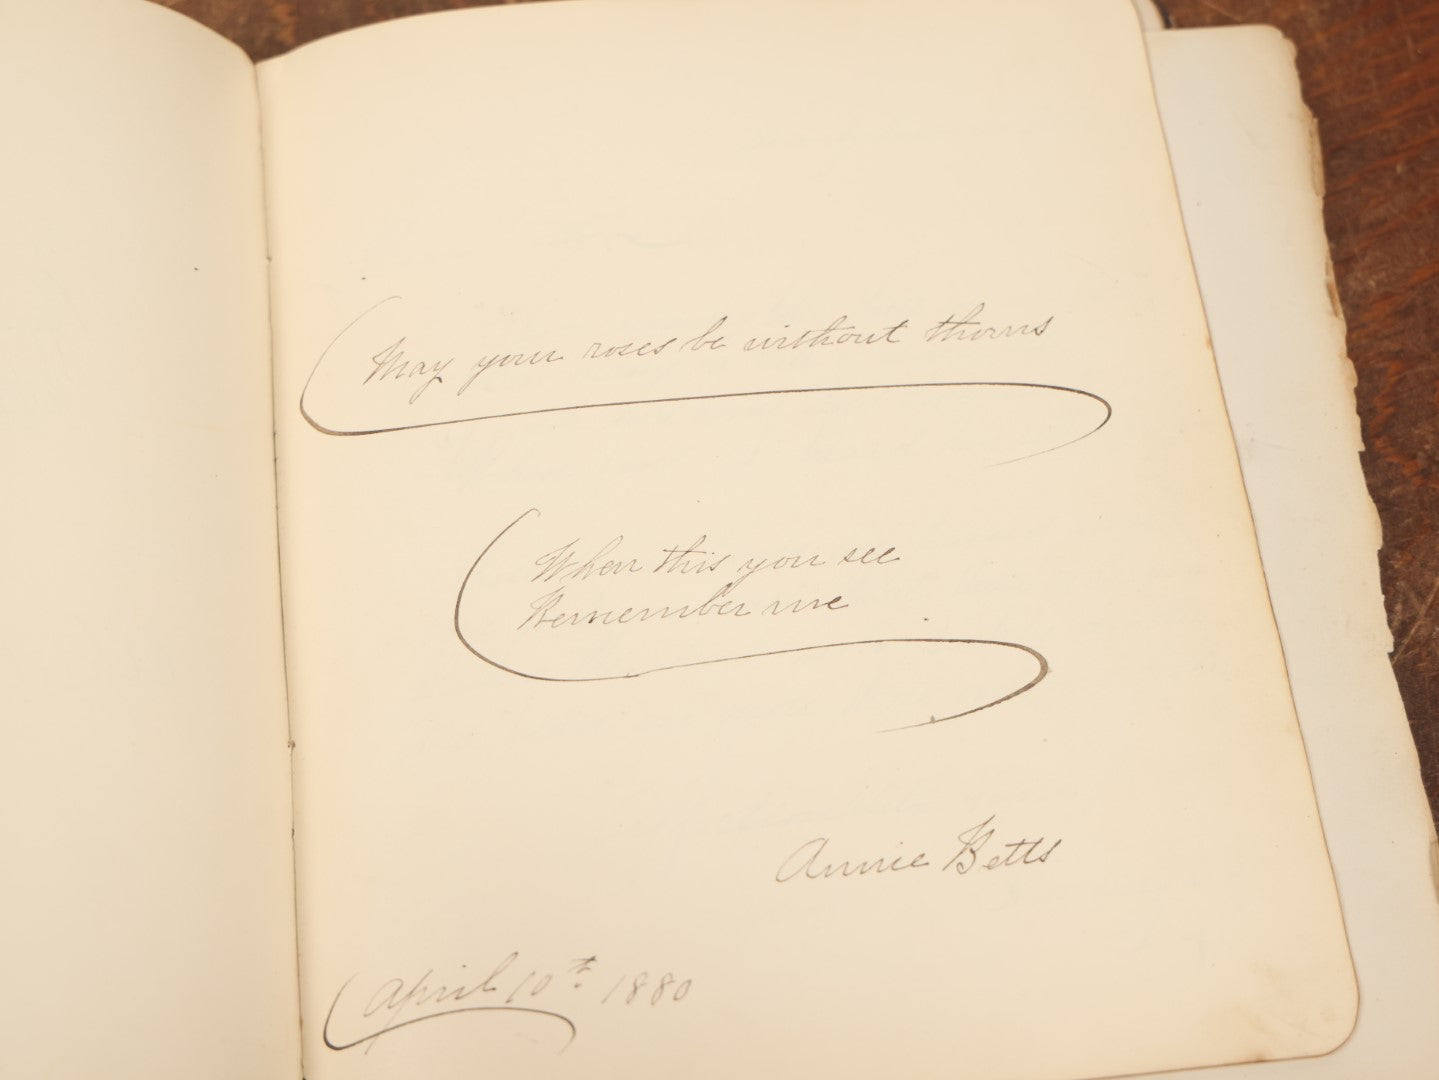 May your roses be without thorns
When this you see
Remember me
Annie Betts
April 10th. 1880